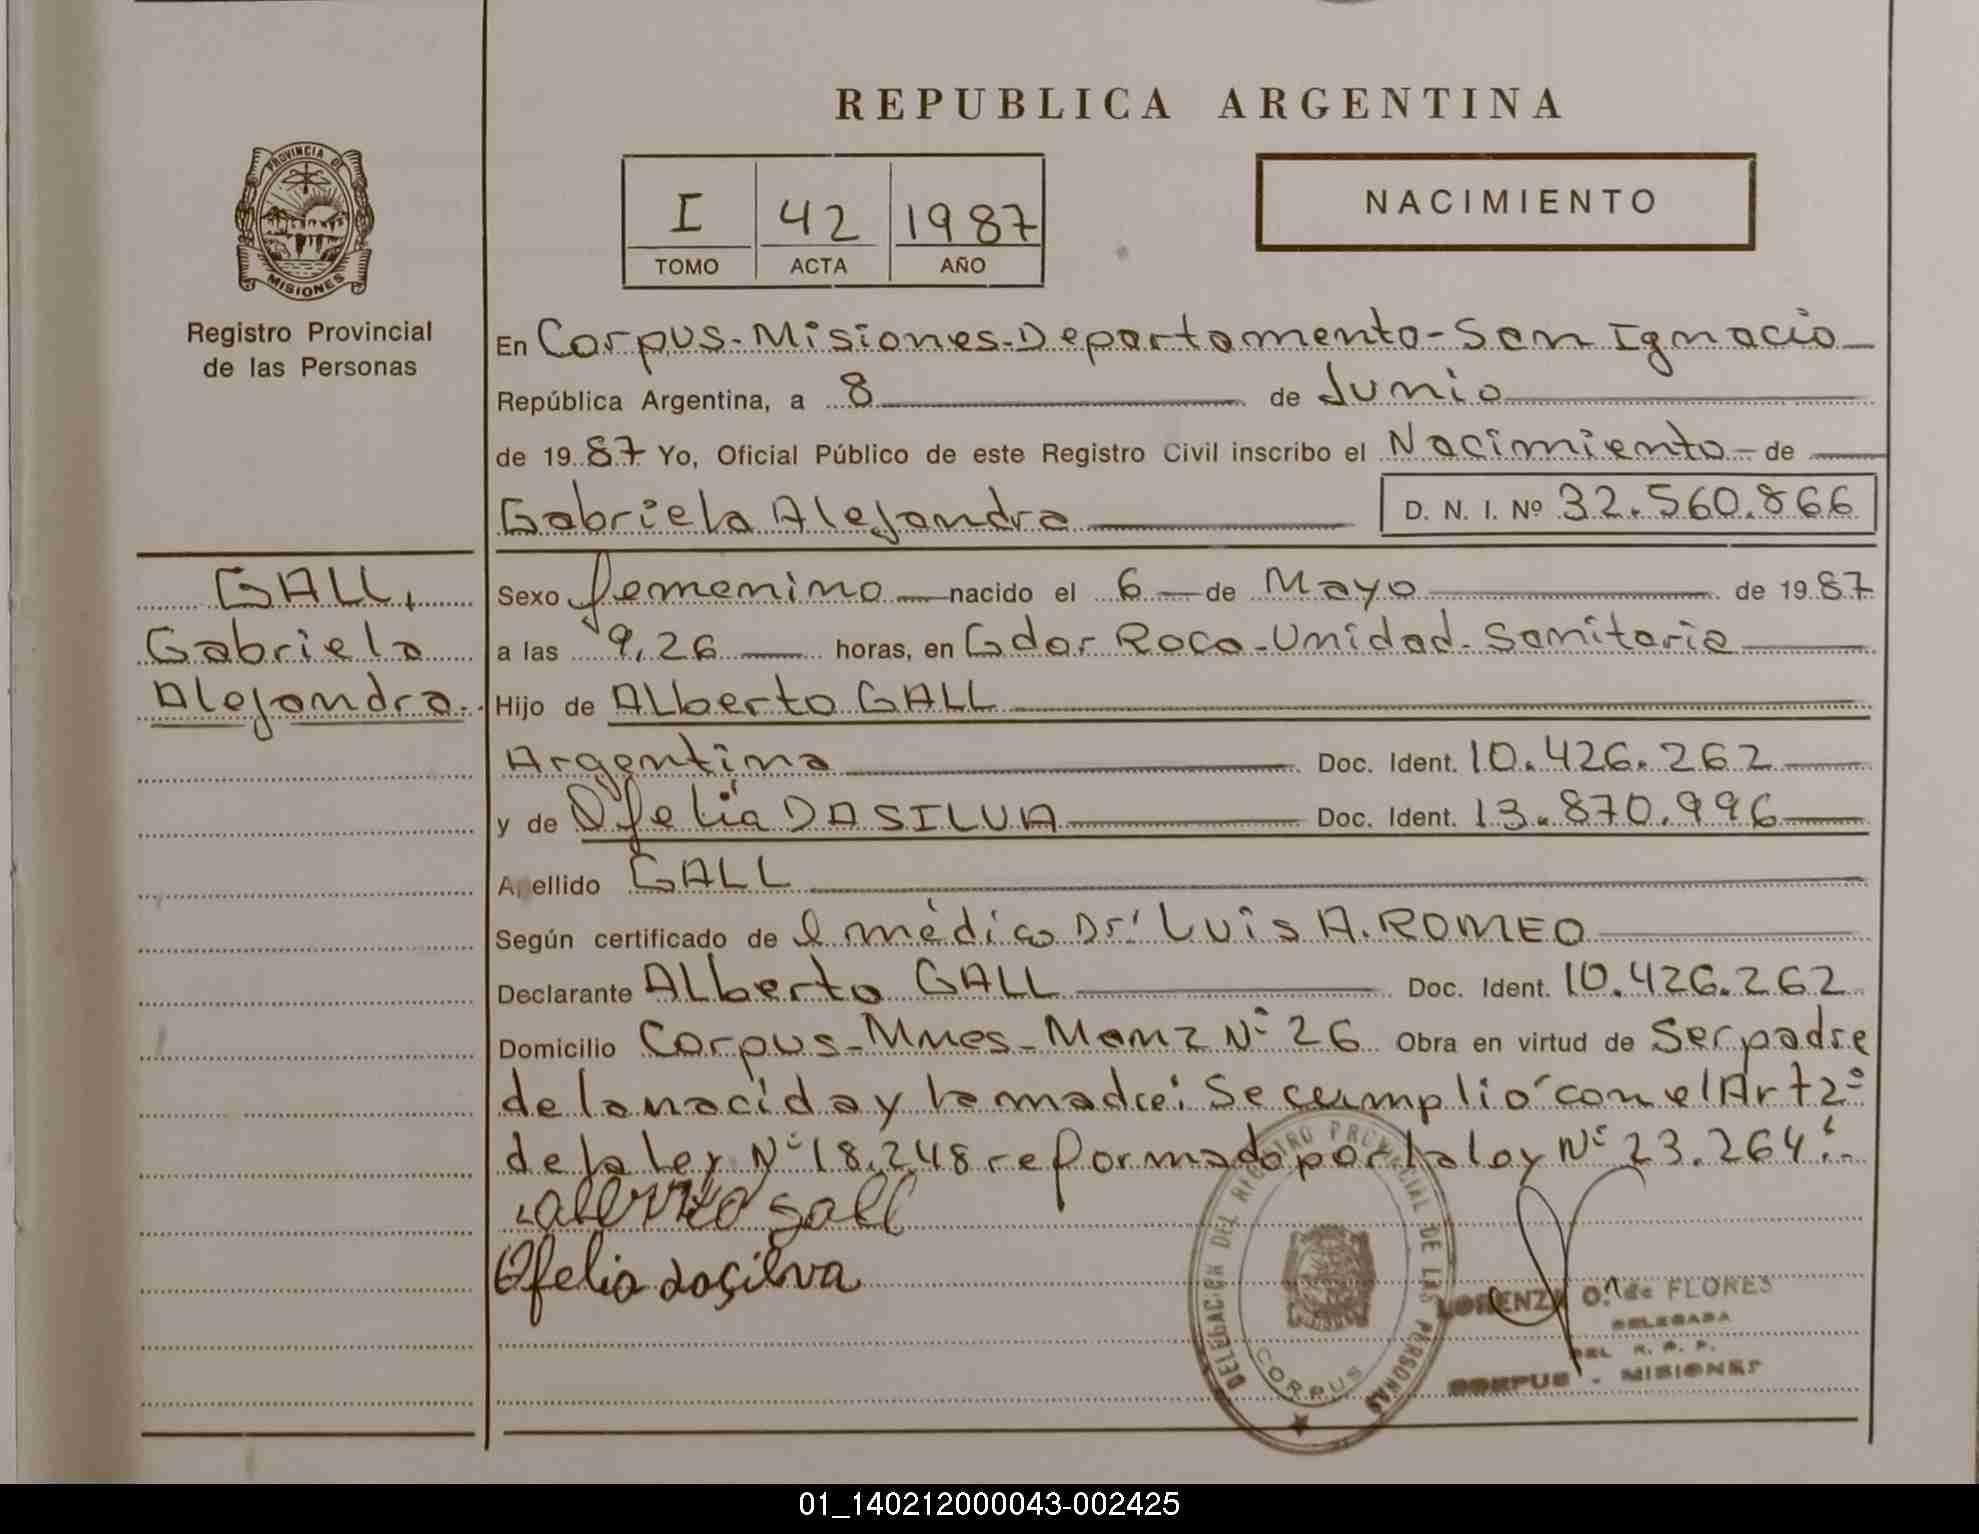 REPUBLICA ARGENTINA
PROVINCIA DE
MISIONES
Registro Provincial
de las Personas
I 42 1987
TOMO ACTA AÑO
NACIMIENTO
En Corpus-Misiones-Departamento-San Ignacio
República Argentina, a 8 de Junio
de 1987 Yo, Oficial Público de este Registro Civil inscribo el Nacimiento de
Gabriela Alejandra D. N. I. Nº 32.560.866
GALL,
Gabriela
Alejandra.
Sexo femenino nacido el 6 de Mayo de 1987
a las 9,26 horas, en Gdor Roca-Unidad-Sanitaria
Hijo de Alberto GALL
Argentina Doc. Ident. 10.426.262
y de Ofelia DASILVA Doc. Ident. 13.870.996
Apellido GALL
Según certificado de el médico Dr! Luis A. ROMEO
Declarante Alberto GALL Doc. Ident. 10.426.262
Domicilio Corpus-Mnes-Manz Nº 26 Obra en virtud de Ser padre
de la nacida y la madre: Se cumplió con el Art 2º
de la ley Nº 18.248 reformado por la ley Nº 23.264:
alberto gall
Ofelia daçilva
DELEGACION DEL REGISTRO PROVINCIAL DE LAS PERSONAS
CORPUS
LORENZA O. de FLORES
DELEGADA
DEL R. P. P.
CORPUS - MISIONES
01_140212000043-002425